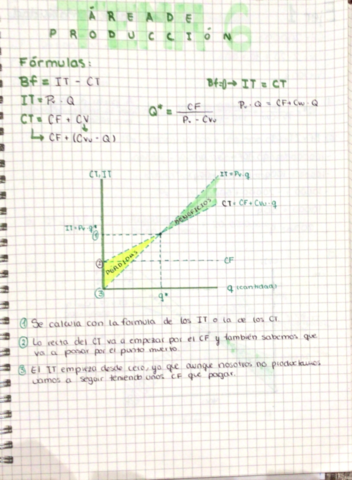 TEMA 6
ÁREA DE
PRODUCCIÓN
Fórmulas:
Bf = IT - CT
Bf=0 → IT = CT
IT = Pv · Q
Q* = CF / Pv - CVu
Pv · Q = CF + CVu · Q
CT = CF + CV
↳ CF + (CVu · Q)
CT, IT
IT = Pv · q
BENEFICIOS
CT = CF + CVu · q
IT = Pv · q*
①
②
PÉRDIDAS
CF
③
q*
q (cantidad)
① Se calcula con la fórmula de los IT o la de los CT.
② La recta del CT va a empezar por el CF y también sabemos que
va a pasar por el punto muerto.
③ El IT empieza desde cero, ya que aunque nosotros no produzcamos
vamos a seguir teniendo unos CF que pagar.